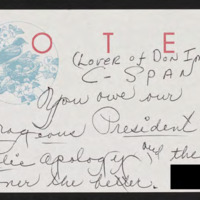 O T E
(Lover of Don Im
C-SPAN
You owe our
rageous President
lic apology, and the
oner the better.